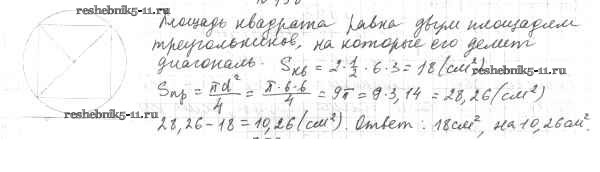 reshebnik5-11.ru
Площадь квадрата равна двум площадям
треугольников, на которые его делит
диагональ. Sкв = 2·1/2·6·3 = 18 (см²)
reshebnik5-11.ru
Sкр = πd²/4 = π·6·6/4 = 9π = 9·3,14 = 28,26 (см²)
reshebnik5-11.ru
28,26-18 = 10,26 (см²). Ответ: 18см², на 10,26см².